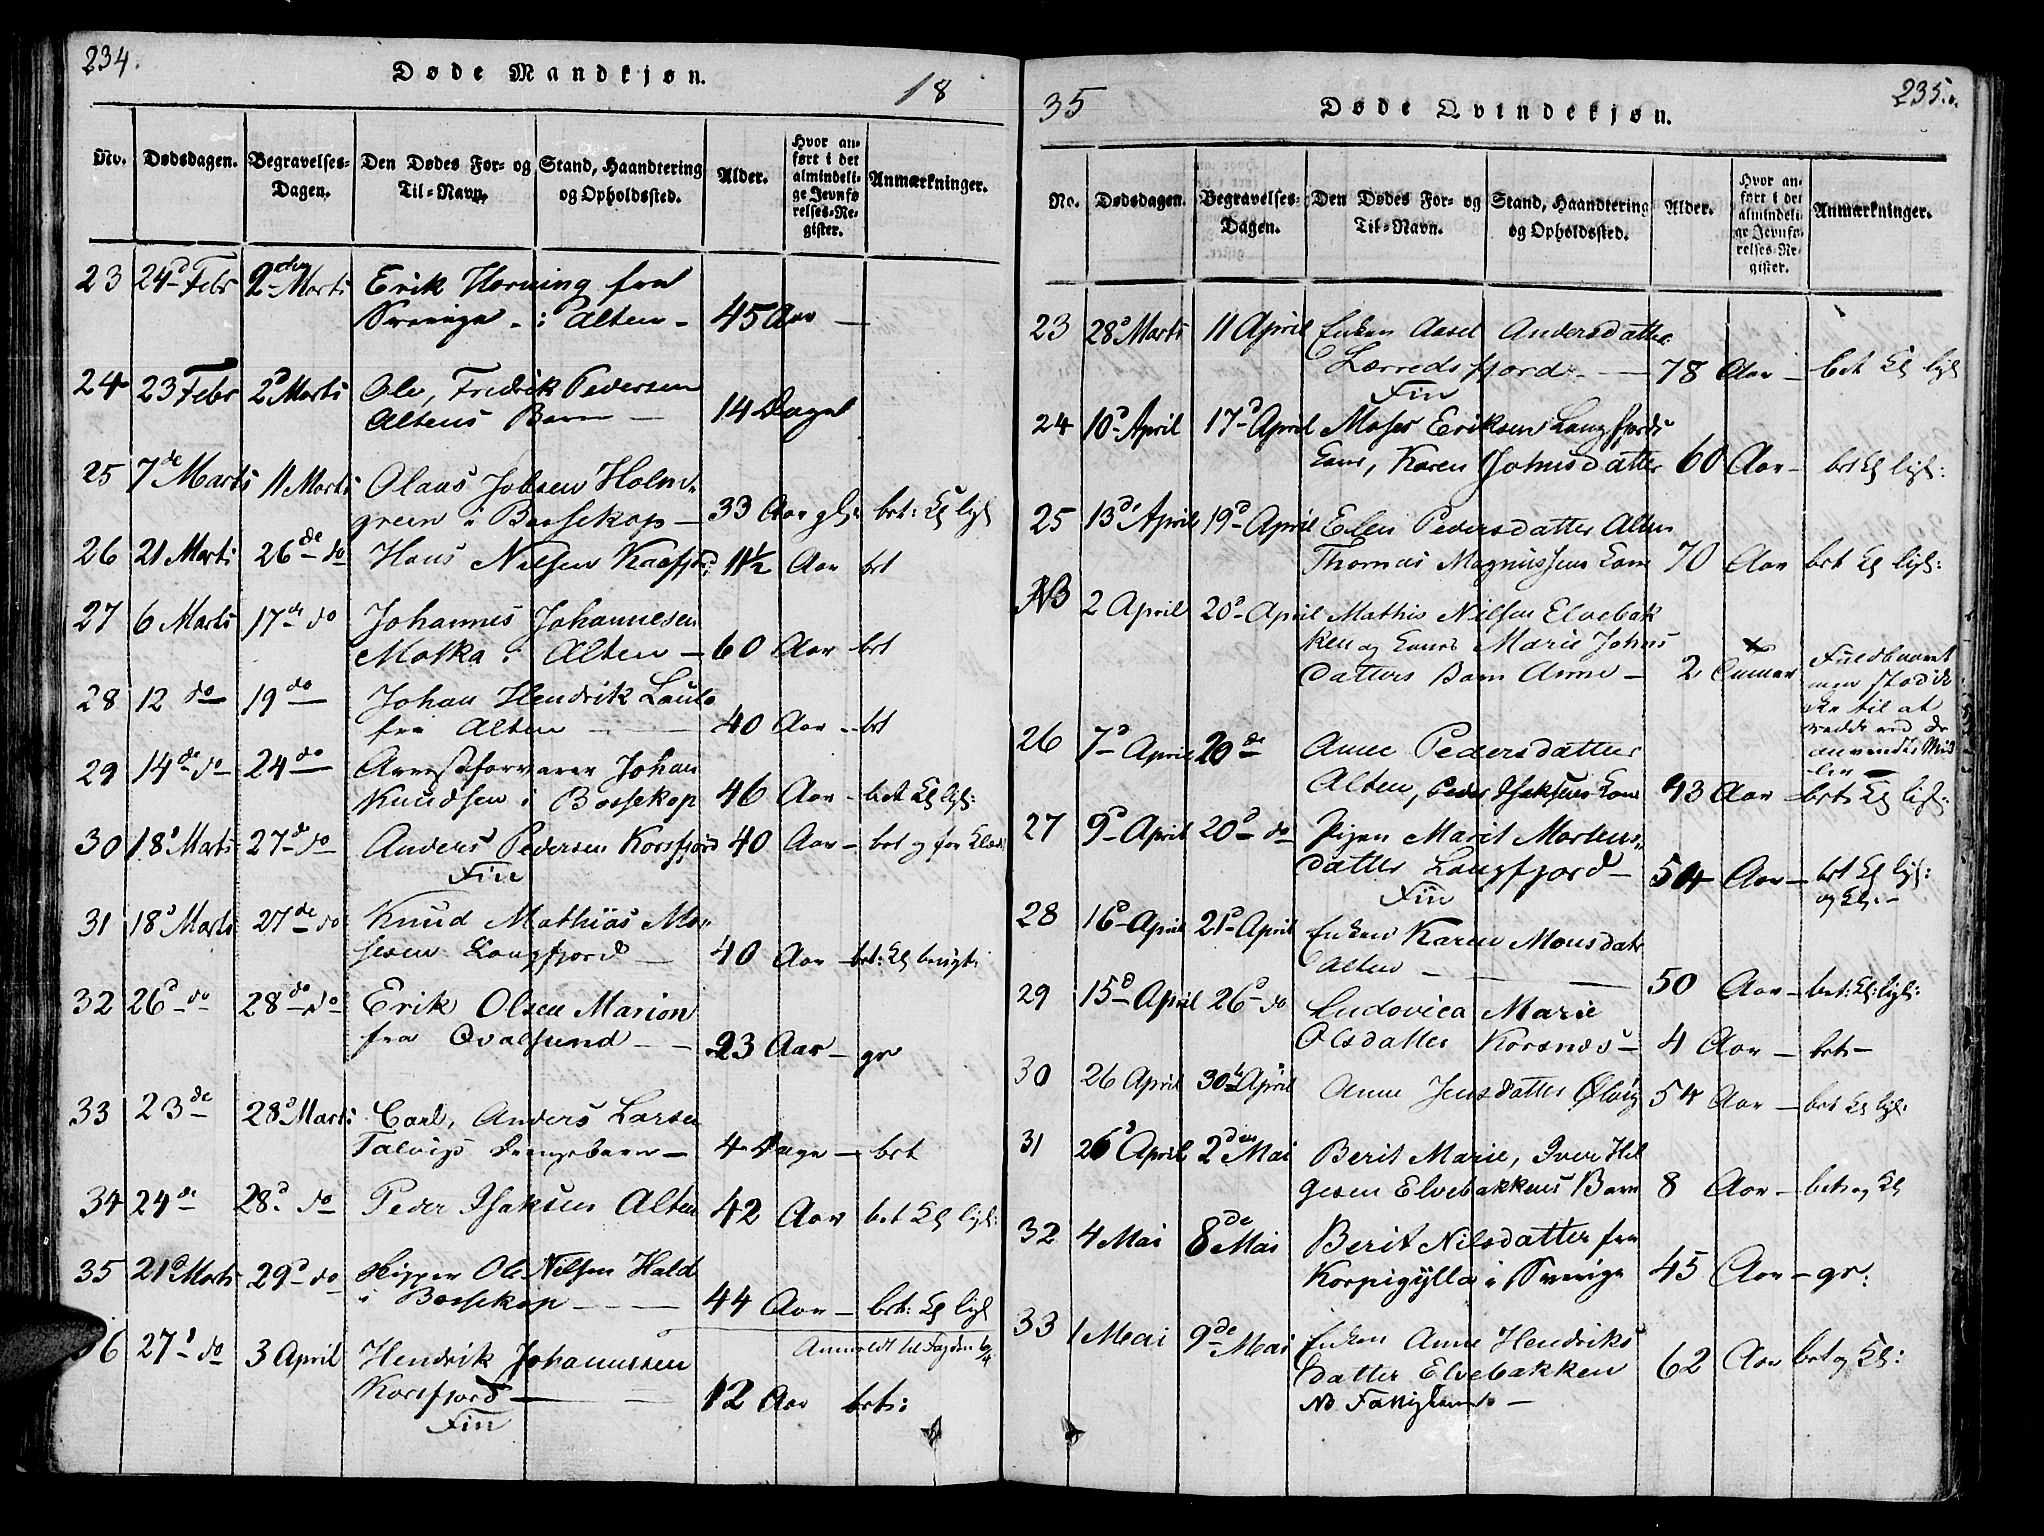 234.
Døde Mandkjøn.
18
No. Dødsdagen. Begravelses-Dagen. Den Dødes For- og Til-Navn. Stand, Haandtering og Opholdssted. Alder. Hvor anført i det almindelige Jevnførelses-Register. Anmærkninger.
23 24d Febr 2den Marts Erik Horning fra
Sverige - i Alten - 45 Aar -
24 23 Febr 2d Marts Ole, Fredrik Pedersen
Altens Barn - 14 Dage
25 7de Marts 11 Marts Olaus Jobsen Holm-
green i Bossekop - 33 Aar brt: Kl ligl
26 21 Marts 26de do Hans Nilsen Kaafjord 11½ Aar brt
27 6 Marts 17de do Johannes Johannesen
Motka i Alten - 60 Aar brt
28 12 do 19 do Johan Hendrik
fra Alten - 40 Aar - brt
29 14de do 24 do Arrestforvarer Johan
Knudsen i Bossekop 46 Aar - bet Kl ligl:
30 18d Marts 27de do Anders Pedersen Korsfjord 40 Aar - bet og
Fin
31 18d Marts 27de do Knud Mathias Mo-
sesen Langfjord - 40 Aar - brt: Kl
32 26d do 28 do Erik Olsen Marion
fra Qvalsund - 23 Aar - gr
33 23de 28d Marts Carl, Anders Larsen
Talvigs Drengebarn - 4 Dage - bet
34 24de 28d. do Peder Isaksen Alten 42 Aar bet Kl ligl:
35 21d Marts 29d do Skipper Ole Nilsen Hald
i Bossekop - 44 Aar - brt: Kl ligl
Anmeldt til Fogden 6/4
36 27d do 3 April Hendrik Johannessen
Korsfjord - 12 Aar brt:
Fin
35
Døde Qvindekjøn.
235.
No. Dødsdagen. Begravelses-Dagen. Den Dødes For- og Til-Navn. Stand, Haandtering og Opholdssted. Alder. Hvor anført i det almindelige Jevnførelses-Register. Anmærkninger.
23 28d Marts 11 April Enken Aasel Andersdatter
Lærredsfjord - 78 Aar - bet Kl ligl
Fin
24 10d April 17d April Moses Eriksen Langfjords
Kone, Karen Johnsdatter 60 Aar - brt Kl ligl:
25 13d April 19d April Elen Pedersdatter Alten
Thomas Magnussens Kone 70 Aar brt Kl ligl:
NB 2 April 20d April Mathis Nilsen Elvebak
ken og Kones Marie Johns
datters Barn Anne - 2 Fuldbaaret
men stod ik
ke til at
redde ved de
anvendte Mid
ler -
26 7d April 20de Anne Pedersdatter
Alten, Peder Isaksens Kone 43 Aar brt Kl ligl:
27 9d April 20d do Pigen Marit Mortens-
datter Langfjord - 54 Aar - brt Kl ligl:
Fin og Kl. -
28 16d April 21d April Enken Karen Monsdatr
Alten - 50 Aar - bet: Kl: ligl:
29 15d April 26d do Ludovica Marie
Olsdatter Korsnes - 4 Aar - brt -
30 26 April 30te April Anne Jensdatter 54 Aar - brt Kl ligl:
31 26d April 2den Mai Berit Marie, Iver Hel
gesen Elvebakkens Barn 8 Aar - bet og Kl
32 4 Mai 8de Mai Berit Nilsdatter fra
Korpigylla i Sverige 45 Aar - gr:
33 1 Mai 9de Mai Enken Anne Hendriks
datter Elvebakken 62 Aar brt og Kl:
NB